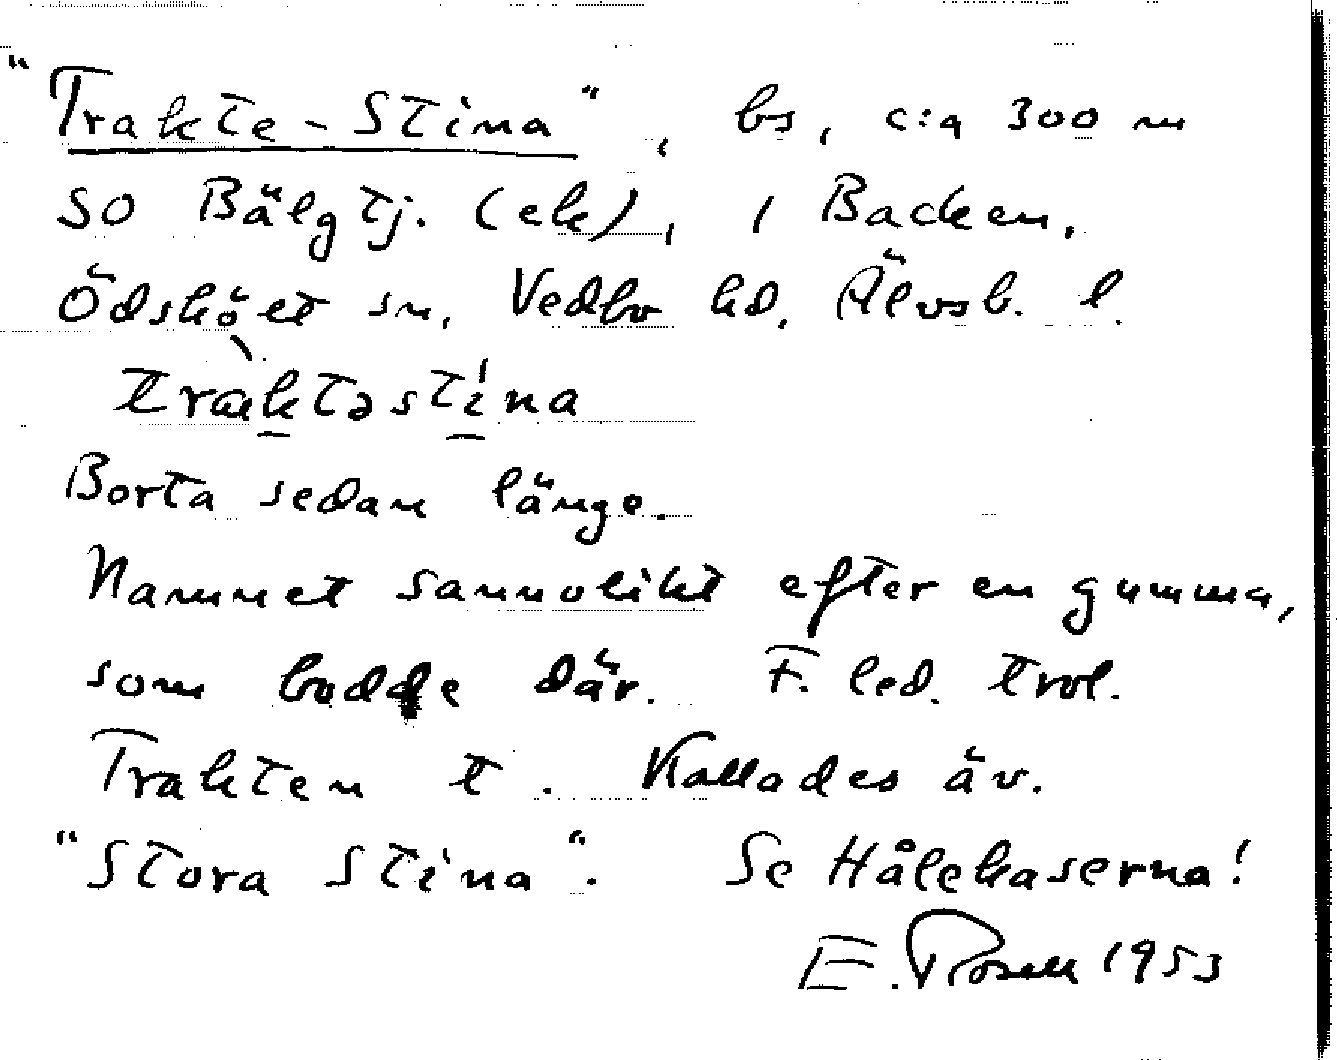 "Trakte-Stina", bs, c:a 300 m
SO Bälgtj. (ek), i Backen,
Ödskölt sn, Vedbo hd, Älvsb. l.
tràktəstína
Borta sedan länge.
Namnet sannolikt efter en gumma,
som bodde där. F. led. trol.
Trakten t. Kallades äv.
"Stora Stina". Se Hålekaserna!
E. Rosell 1953